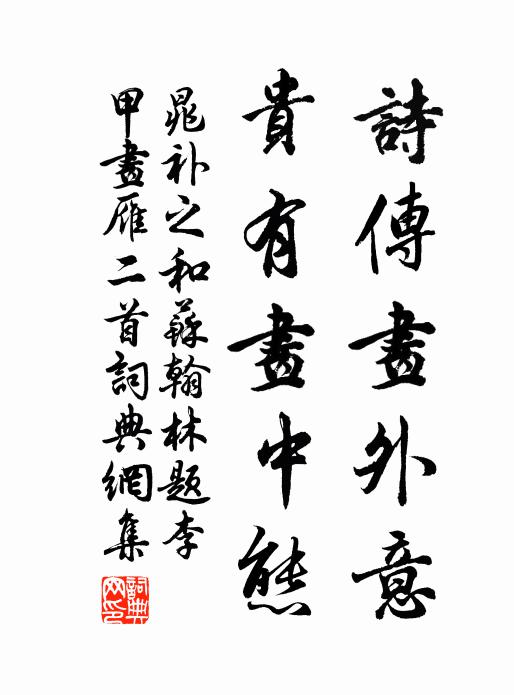 詩傳畫外意
貴有畫中態
晁补之和蘇翰林題李
甲畫雁二首詞典網集
詞典
网印